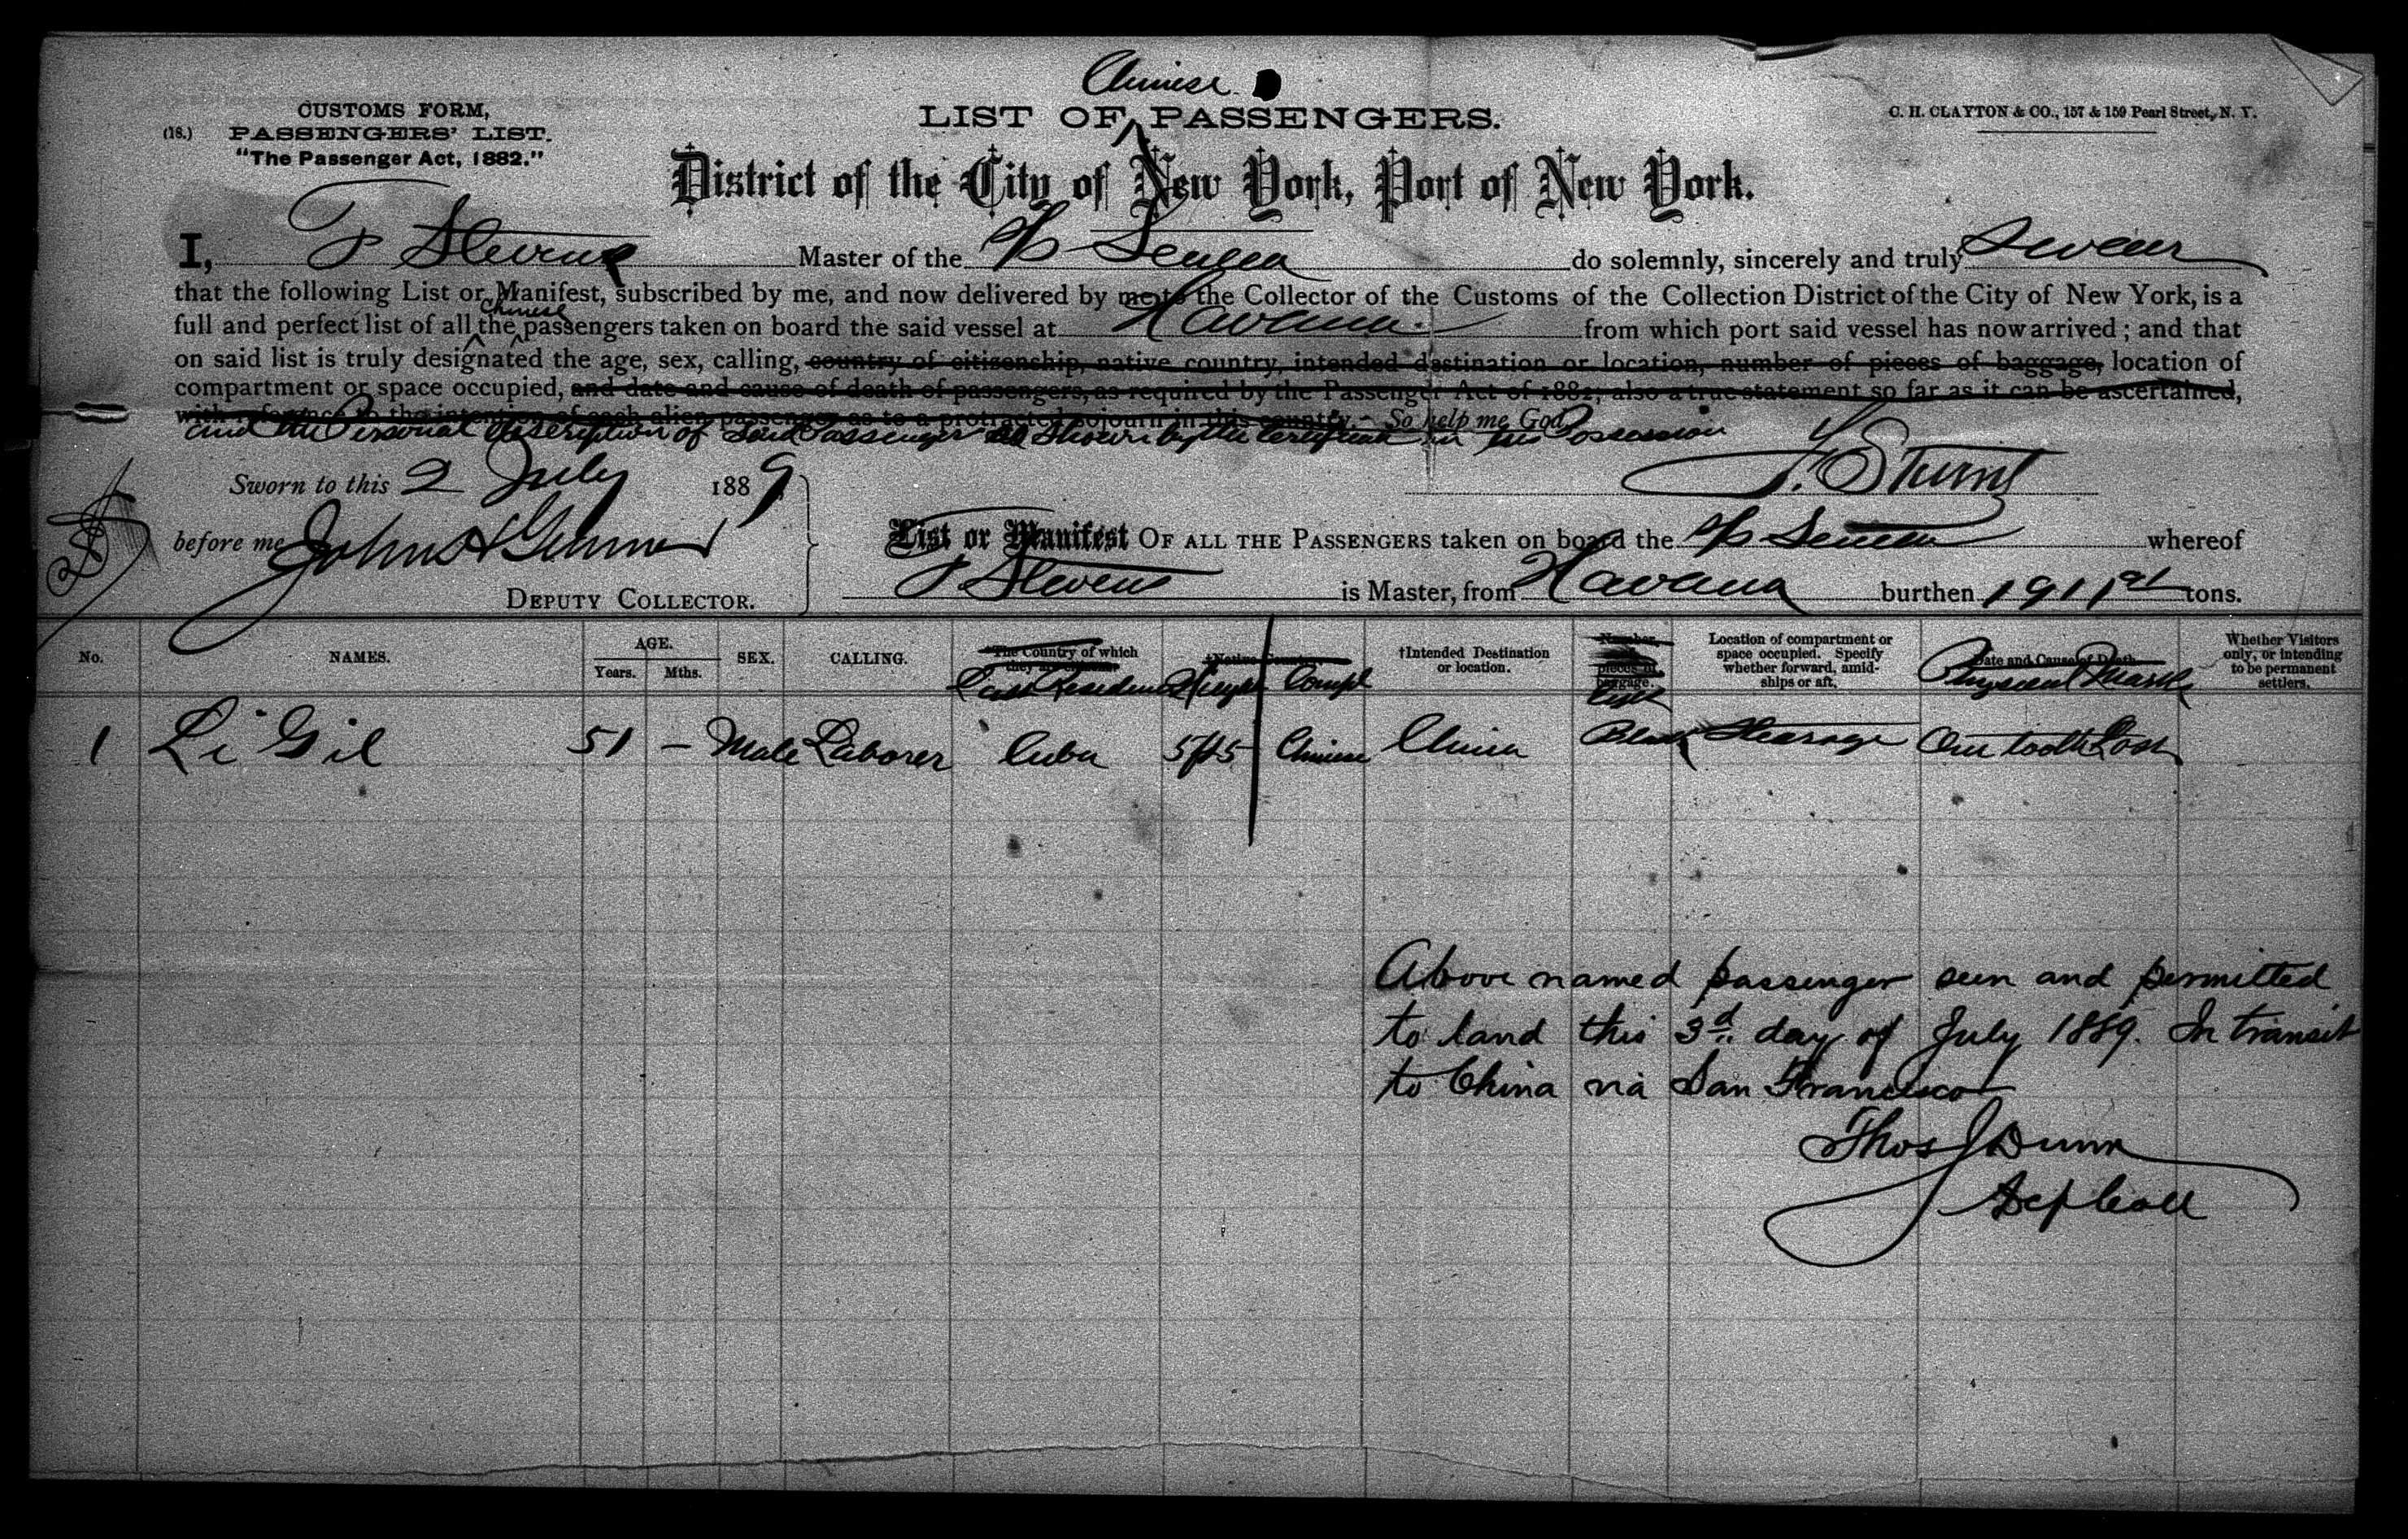 Chinese
CUSTOMS FORM,
(18.) PASSENGERS' LIST.
"The Passenger Act, 1882."
LIST OF PASSENGERS.
C. H. CLAYTON & CO., 157 & 159 Pearl Street, N. Y.
District of the City of New York, Port of New York.
I, T Stevens Master of the S/S Seneca do solemnly, sincerely and truly swear
that the following List or Manifest, subscribed by me, and now delivered by me to the Collector of the Customs of the Collection District of the City of New York, is a
Chinese
full and perfect list of all the passengers taken on board the said vessel at Havana from which port said vessel has now arrived; and that
on said list is truly designated the age, sex, calling, country of citizenship, native country, intended destination or location, number of pieces of baggage, location of
compartment or space occupied, and date and cause of death of passengers, as required by the Passenger Act of 1882; also a true statement so far as it can be ascertained,
with reference to the intention of each alien passenger as to a protracted sojourn in this country.— So help me God.
and the Personal description of said Passenger as shown by the Certificate in his Possession
Sworn to this 2 July 1889
before me
DEPUTY COLLECTOR.
List or Manifest OF ALL THE PASSENGERS taken on board the S/S Seneca whereof
T Stevens is Master, from Havana burthen 1911 tons.
No. NAMES. AGE. Years. Mths. SEX. CALLING. The Country of which they are citizens. Last Residence †Native Country. Height Compl †Intended Destination or location. Number and pieces of baggage. Location of compartment or space occupied. Specify whether forward, amidships or aft. Date and Cause of Death. Physical Marks Whether Visitors only, or intending to be permanent settlers.
1 Li Gil 51 – Male Laborer Cuba 5ft5 Chinese China Black Steerage One tooth Lost
Above named passenger seen and permitted
to land this 3d. day of July 1889. In transit
to China via San Francisco
Thos J Dunn
Dep Coll